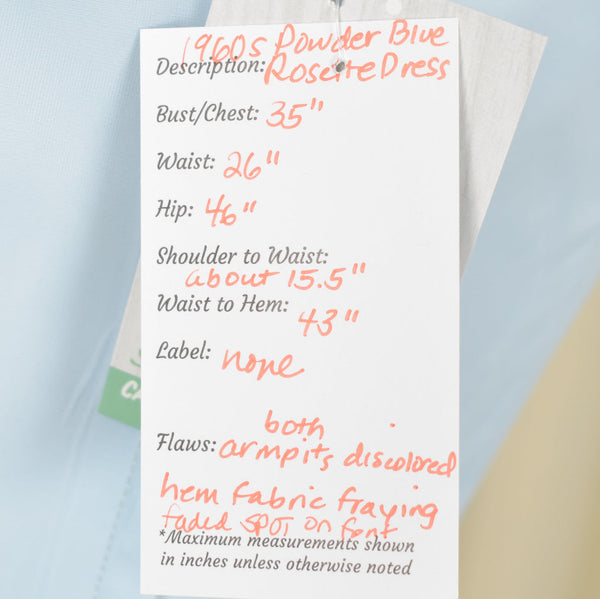 1960s Powder Blue
Description: Rosette Dress
Bust/Chest: 35"
Waist: 26"
Hip: 46"
Shoulder to Waist:
about 15.5"
Waist to Hem:
43"
Label: none
both
Flaws: armpits discolored
hem fabric fraying
faded SPOT on font
*Maximum measurements shown
in inches unless otherwise noted
CA